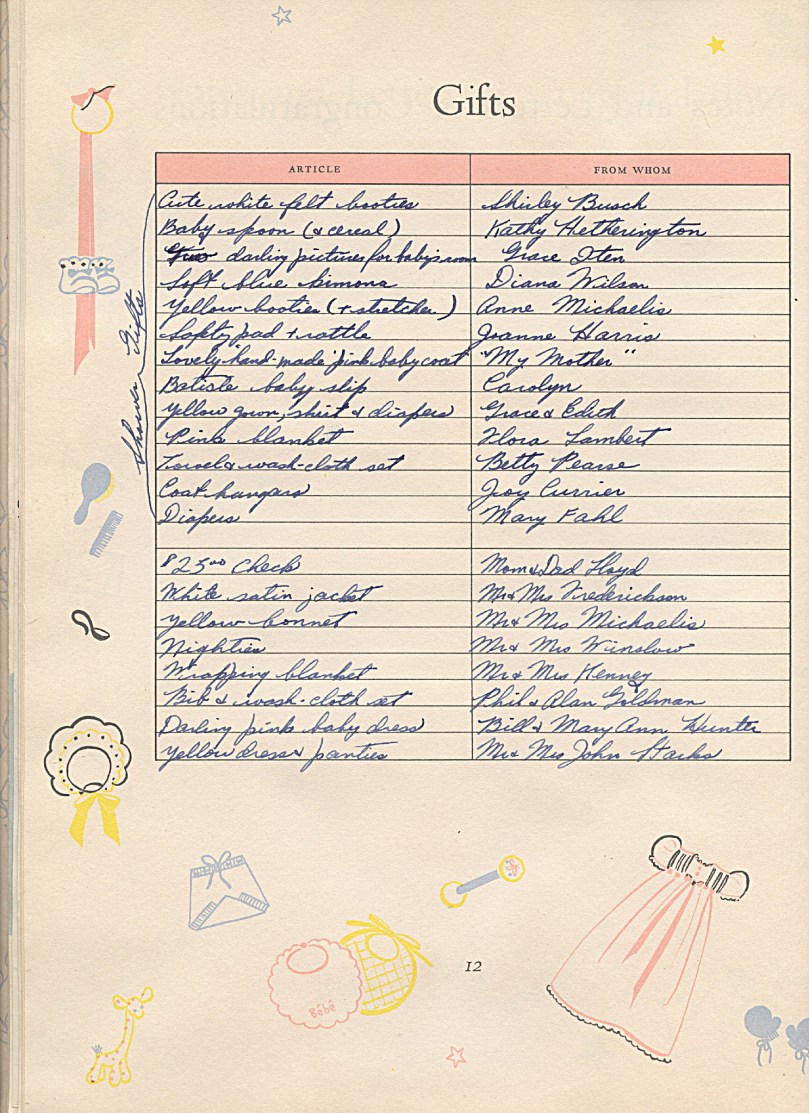 Gifts
ARTICLE FROM WHOM
Shower Gifts
Cute white felt booties Shirley Busch
Baby spoon (& cereal) Kathy Hetherington
Two darling pictures for baby's room Grace Iten
Soft blue kimona Diana Wilson
Yellow booties (+ stretcher) Anne Michaelis
Safety pad + rattle Joanne Harris
Lovely "hand-made" pink baby coat "My Mother"
Batiste baby slip Carolyn
Yellow gown, shirt & diapers Grace & Edith
Pink blanket Flora Lambert
Towel & wash-cloth set Betty Pearse
Coat hangars Joy Currier
Diapers Mary Fahl
$25.00 check Mom & Dad Floyd
White satin jacket Mr & Mrs Frederickson
Yellow bonnet Mr & Mrs Michaelis
Nighties Mr & Mrs Winslow
Wrapping blanket Mr & Mrs Kenney
Bib & wash-cloth set Phil & Alan Goldman
Darling pink baby dress Bill & Mary Ann Hunter
Yellow dress & panties Mr & Mrs John Starks
Bébé
12